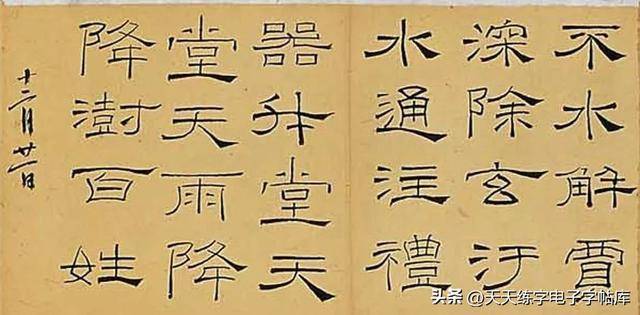 不水解賈
深除玄汙
水通注禮
器升堂天
堂天雨降
降澍百姓
十二月廿一日
头条 @天天练字电子字帖库